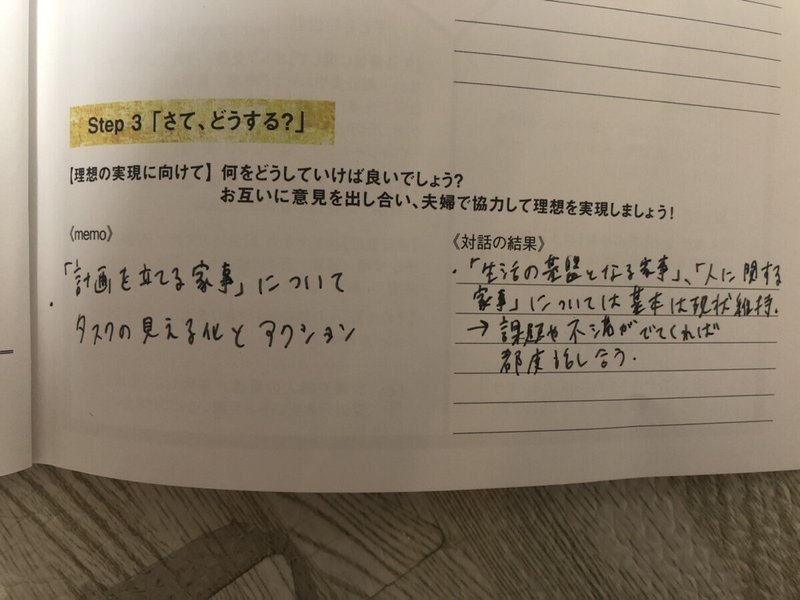 Step 3「さて、どうする？」
【理想の実現に向けて】何をどうしていけば良いでしょう？
お互いに意見を出し合い、夫婦で協力して理想を実現しましょう！
《memo》
・「計画を立てる家事」について
タスクの見える化とアクション
《対話の結果》
・「生活の基盤となる家事」、「人に関する
家事」については基本は現状維持.
→ 課題や不満がでてくれば
都度話し合う.